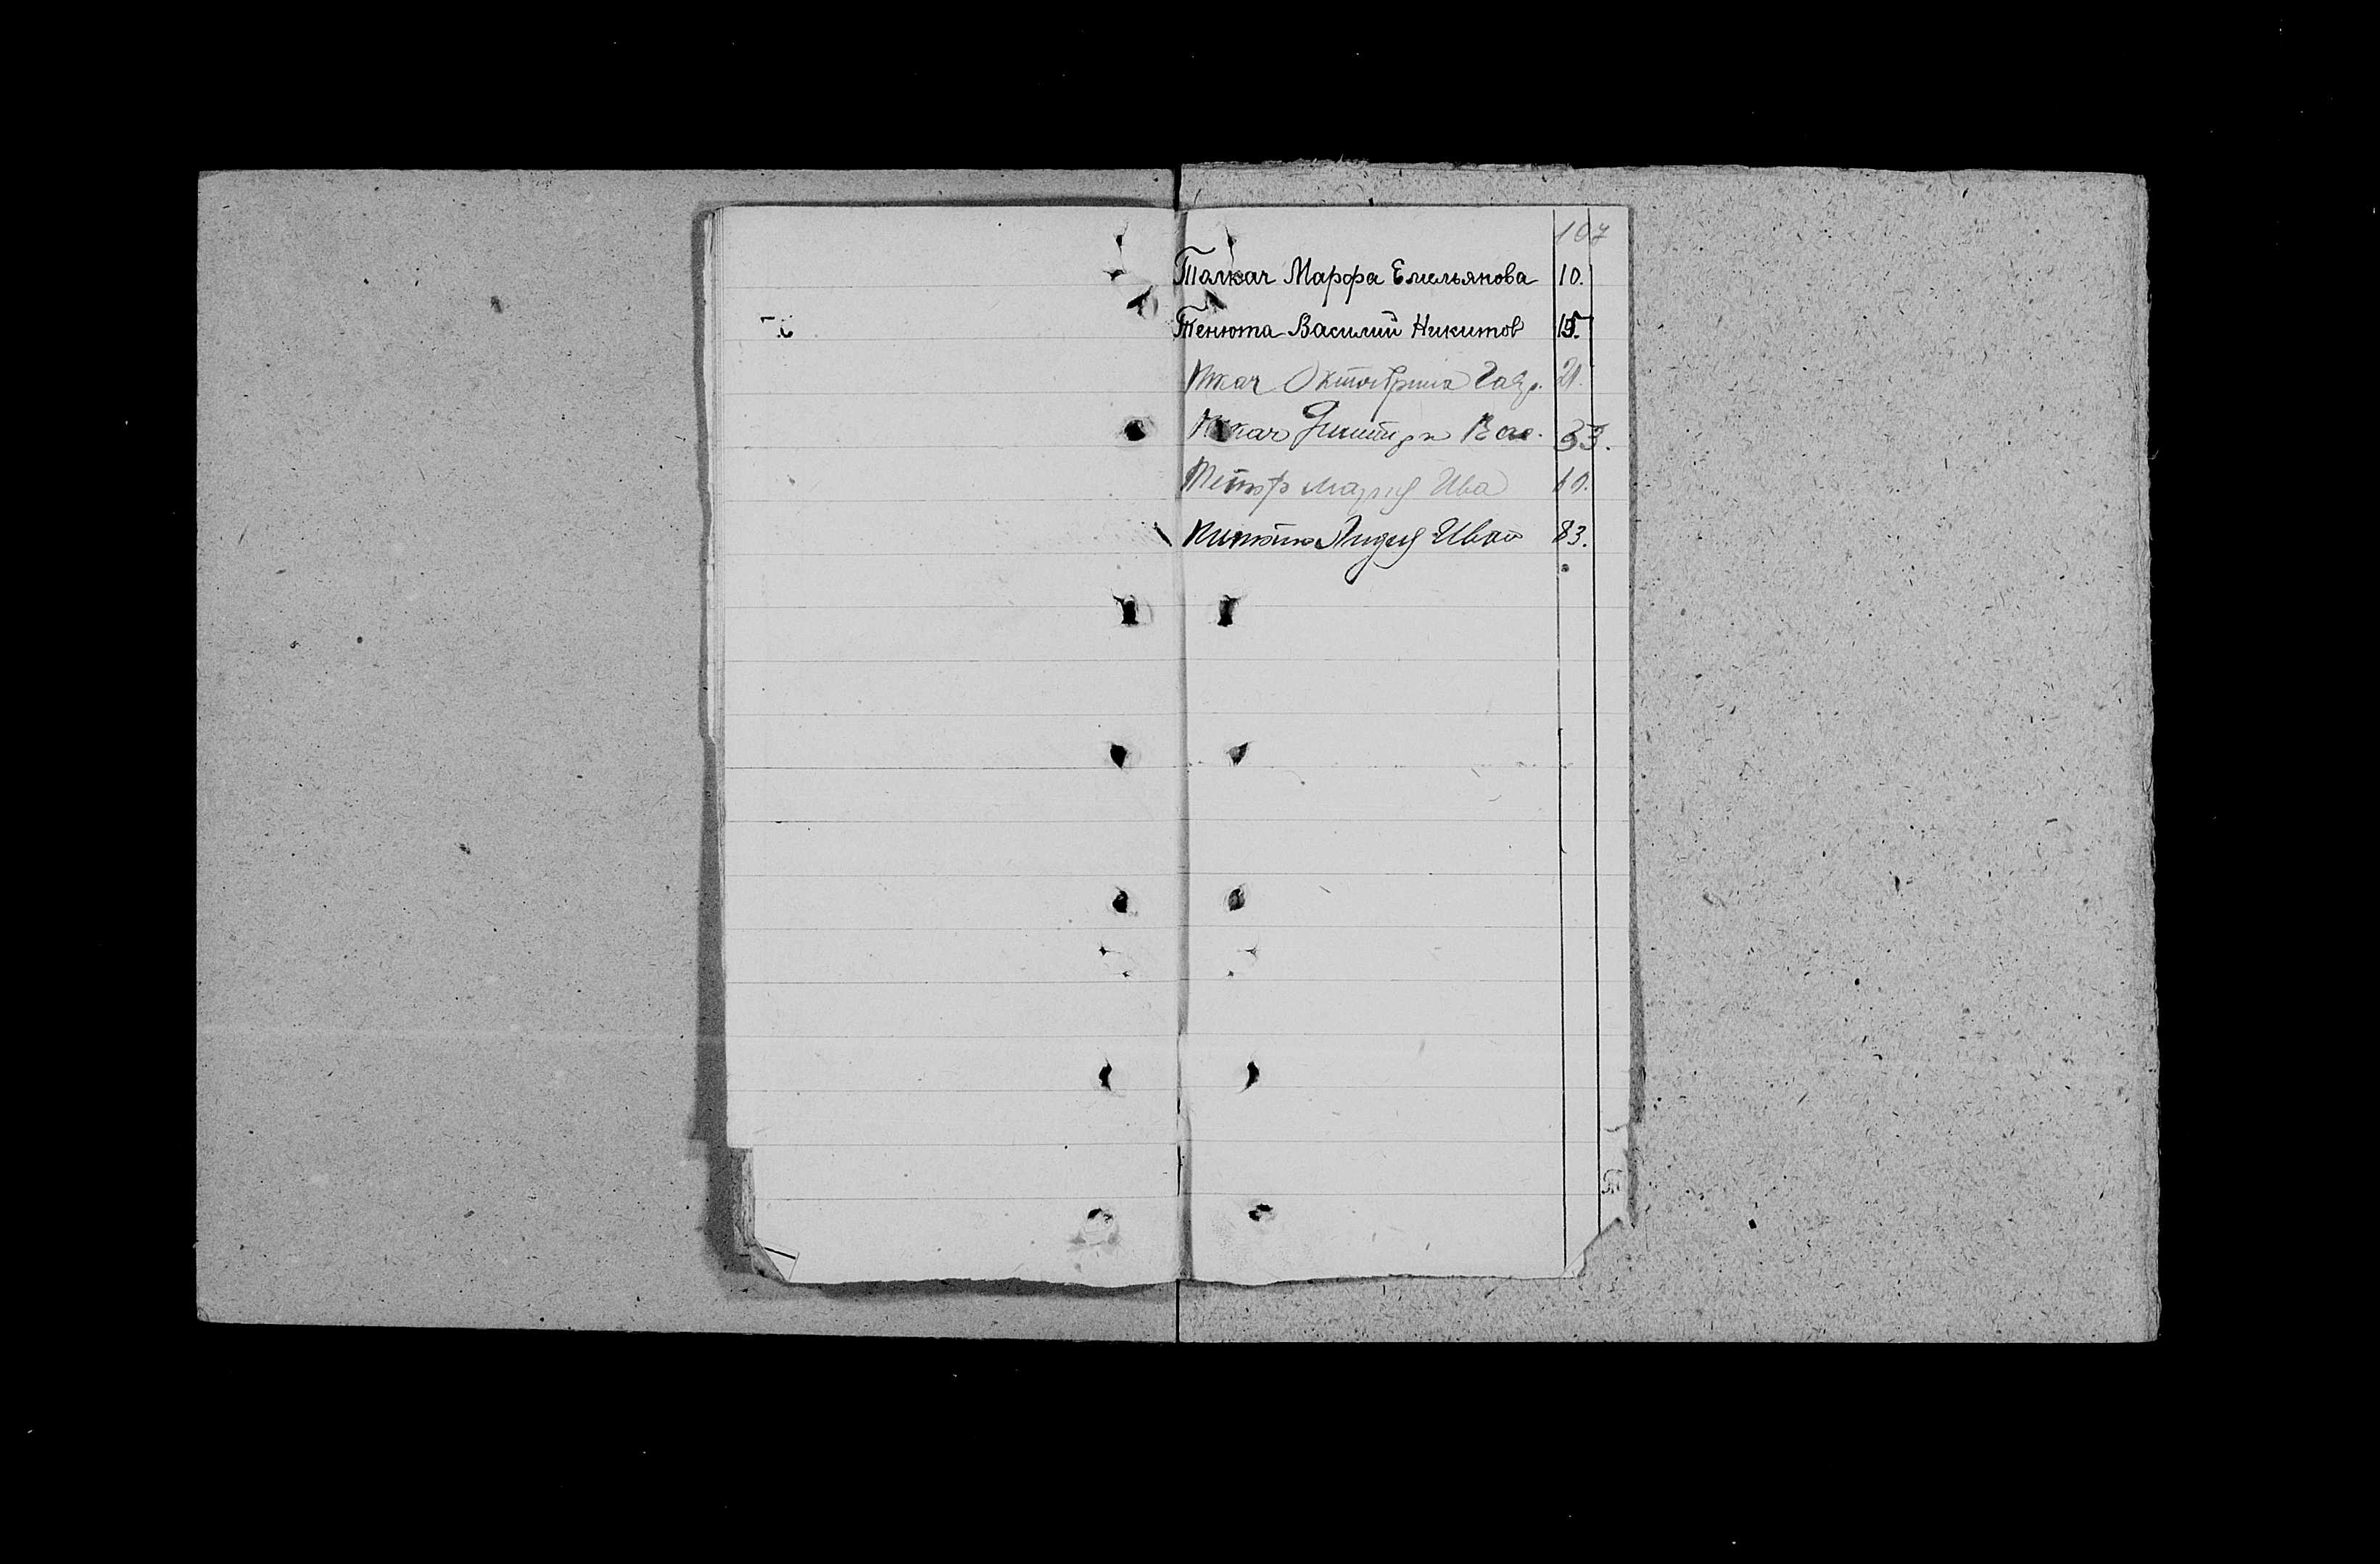 107
Талкач Марфа Емельянова 10.
Тенюта Василий Никитов 15.
Ткач Октябрина Гавр. 21.
Ткач Дмитри Вас. 33.
Мария Ива 60.
Лидия Иван 83.